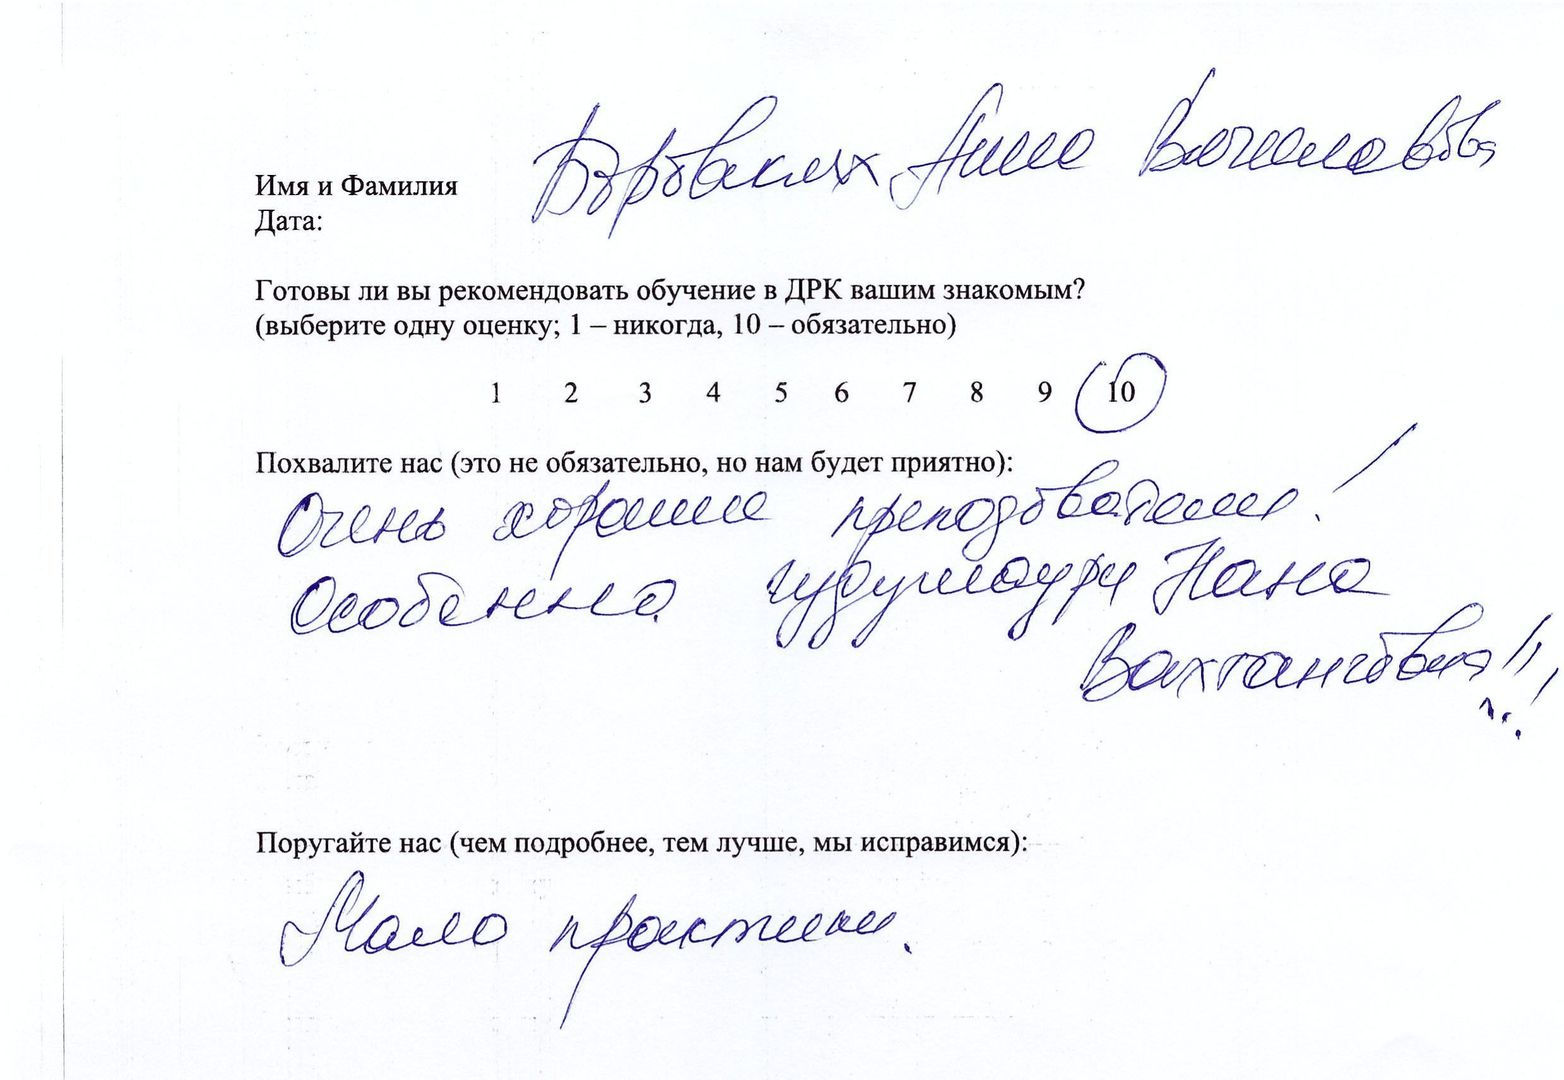 Имя и Фамилия Боровских Анна Вячеславовна
Дата:
Готовы ли вы рекомендовать обучение в ДРК вашим знакомым?
(выберите одну оценку; 1 – никогда, 10 – обязательно)
1 2 3 4 5 6 7 8 9 10
Похвалите нас (это не обязательно, но нам будет приятно):
Очень хорошие преподаватели!
Особенно Гудушаури Нана
Вахтанговна!!!
Поругайте нас (чем подробнее, тем лучше, мы исправимся):
Мало практики.